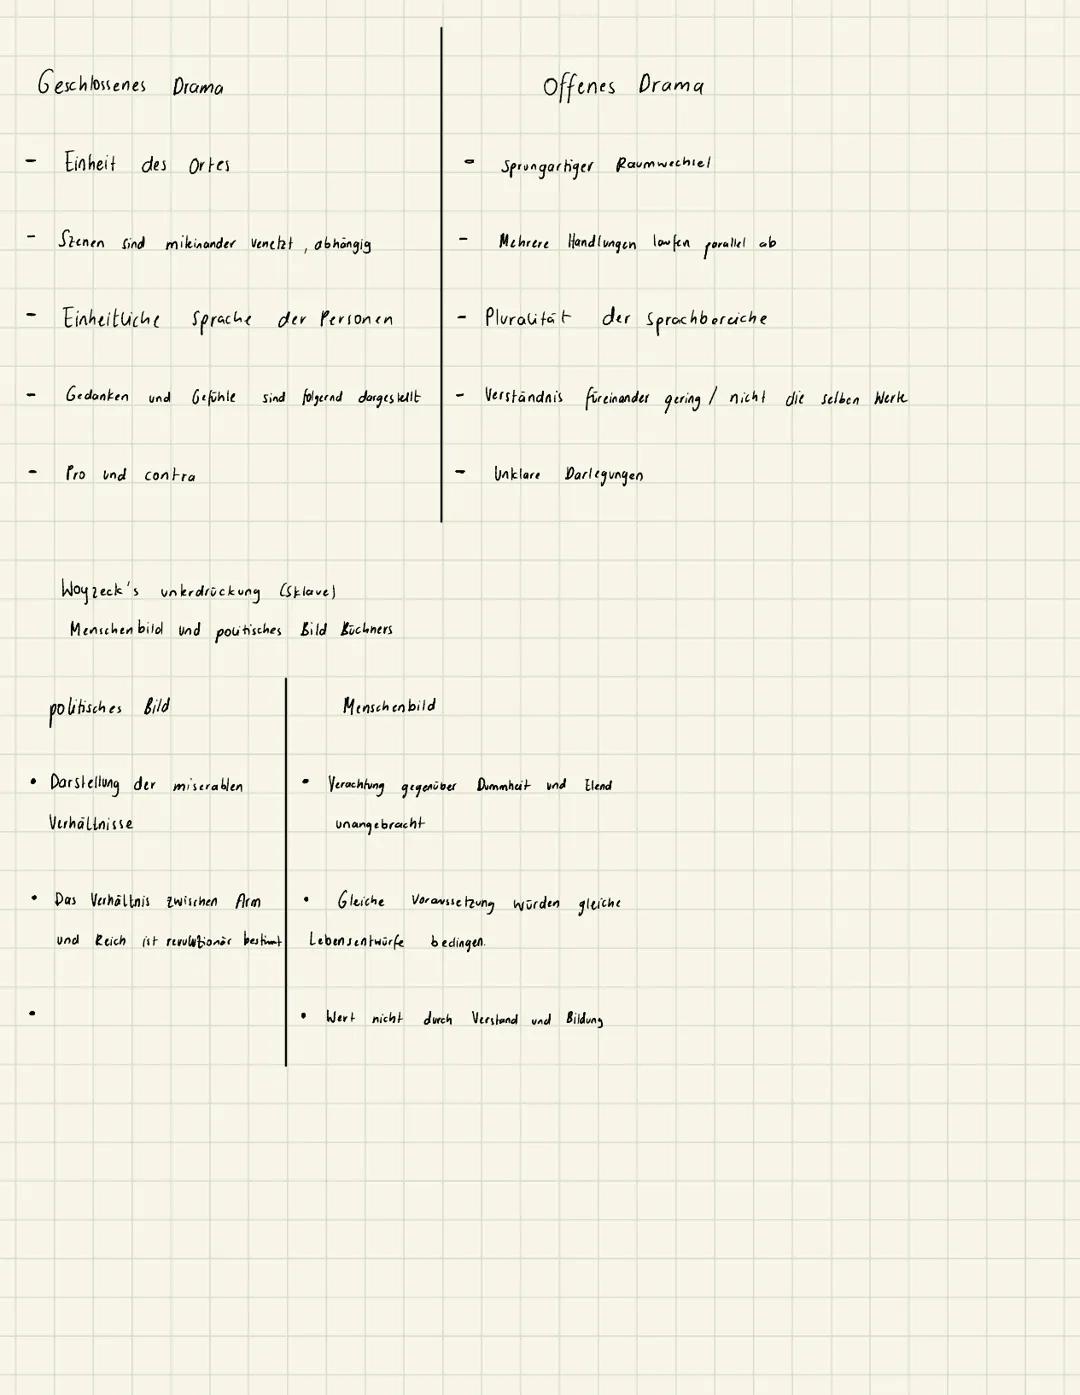 Geschlossenes Drama
Offenes Drama
- Einheit des Ortes
- Sprungartiger Raumwechsel
- Szenen sind miteinander venetzt, abhängig
- Mehrere Handlungen laufen parallel ab
- Einheitliche Sprache der Personen
- Pluralität der Sprachbereiche
- Gedanken und Gefühle sind folgernd dargestellt
- Verständnis füreinander gering / nicht die selben Werte
- Pro und contra
- Unklare Darlegungen
Woyzeck's unterdrückung (Sklave)
Menschenbild und politisches Bild Büchners
politisches Bild
Menschenbild
• Darstellung der miserablen
Verhältnisse
• Verachtung gegenüber Dummheit und Elend
unangebracht
• Das Verhältnis zwischen Arm
und Reich ist revolutionär bestimmt
• Gleiche Voraussetzung würden gleiche
Lebensentwürfe bedingen.
•
• Wert nicht durch Verstand und Bildung